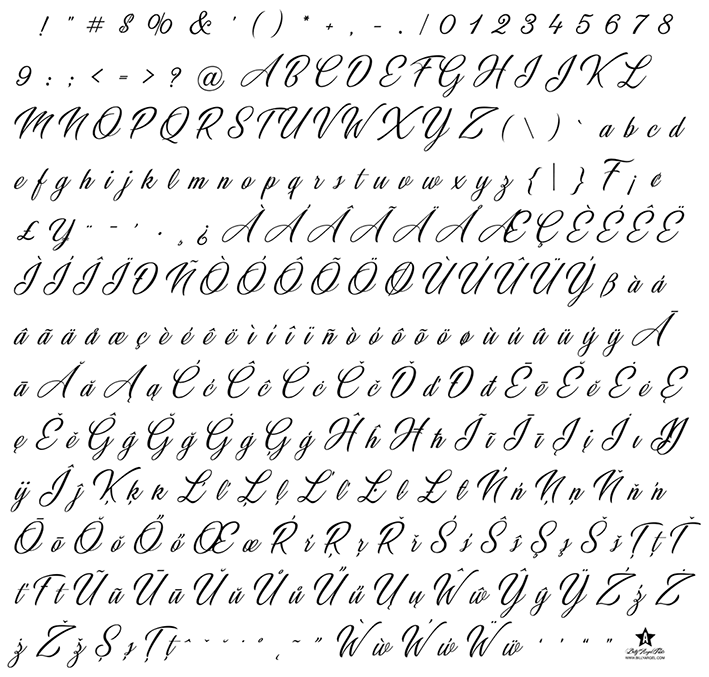 ! " # $ % & ' ( ) * + , - . / 0 1 2 3 4 5 6 7 8
9 : ; < = > ? @ A B C D E F G H I J K L
M N O P Q R S T U V W X Y Z ( \ ) ` a b c d
e f g h i j k l m n o p q r s t u v w x y z { | } ₣ ¡ ¢
£ ¥ ¨ ¯ ´ · ¸ ¿ À Á Â Ã Ä Å Æ Ç È É Ê Ë
Ì Í Î Ï Ð Ñ Ò Ó Ô Õ Ö Ø Ù Ú Û Ü Ý ß à á
â ã ä å æ ç è é ê ë ì í î ï ñ ò ó ô õ ö ø ù ú û ü ý ÿ Ā
ā Ă ă Ą ą Ć ć Ĉ ĉ Ċ ċ Č č Ď ď Đ đ Ē ē Ĕ ĕ Ė ė Ę
ę Ě ě Ĝ ĝ Ğ ğ Ġ ġ Ģ ģ Ĥ ĥ Ħ ħ Ĩ ĩ Ī ī Į į İ ı Ĳ
ĳ Ĵ ĵ Ķ ķ ĸ Ĺ ĺ Ļ ļ Ľ ľ Ŀ ŀ Ł ł Ń ń Ņ ņ Ň ň ŉ
Ō ō Ŏ ŏ Ő ő Œ œ Ŕ ŕ Ŗ ŗ Ř ř Ś ś Ŝ ŝ Ş ş Š š Ţ ţ Ť
ť Ŧ ŧ Ũ ũ Ū ū Ŭ ŭ Ů ů Ű ű Ų ų Ŵ ŵ Ŷ ŷ Ÿ Ź ź Ż
ż Ž ž Ș ș Ț ț ˆ ˇ ˘ ˙ ˚ ˛ ˜ ˝ Ẁ ẁ Ẃ ẃ Ẅ ẅ ‘ ’ “ ”
Billy Argel Fonts
WWW.BILLYARGEL.COM